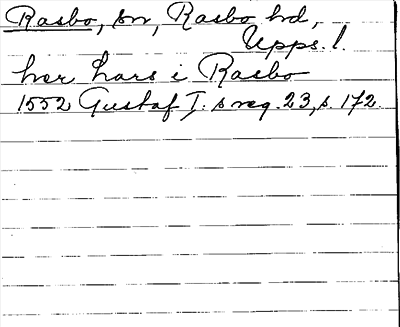 Rasbo, sn, Rasbo hd,
Upps. l.
her Lars i Rasbo
1552 Gustaf I:s reg. 23, s. 172.